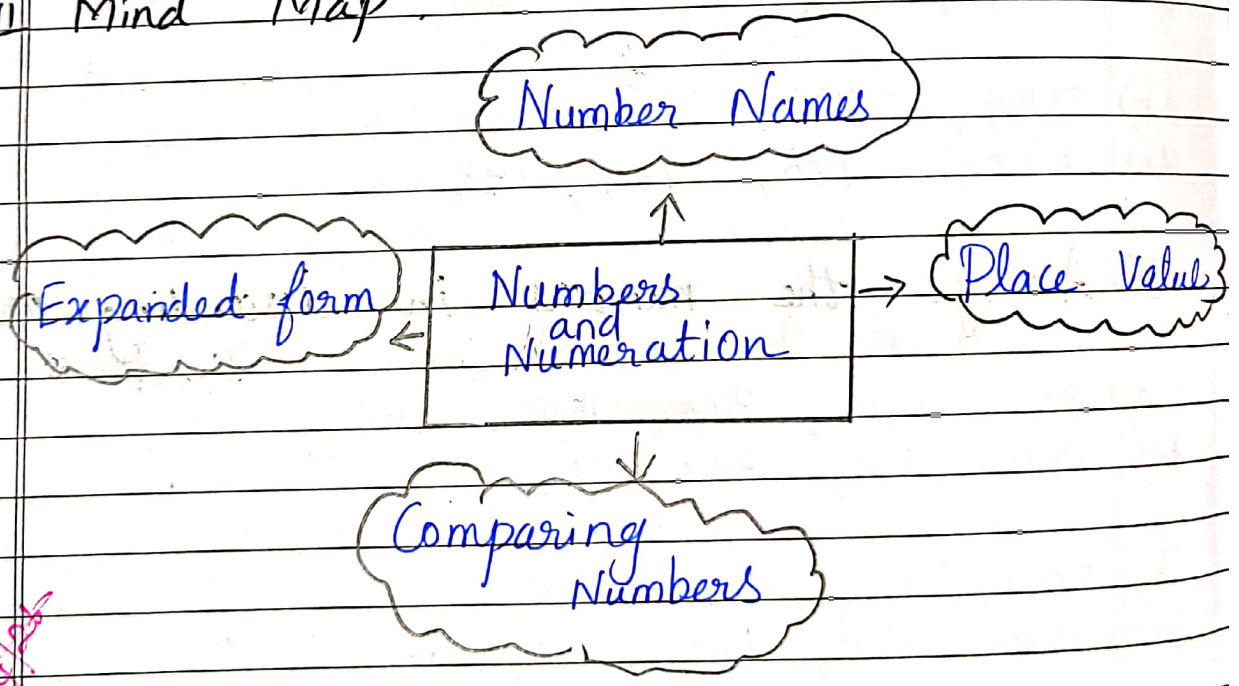 Mind Map
Number Names
Expanded form
Numbers
and
Numeration
Place Value
Comparing
Numbers